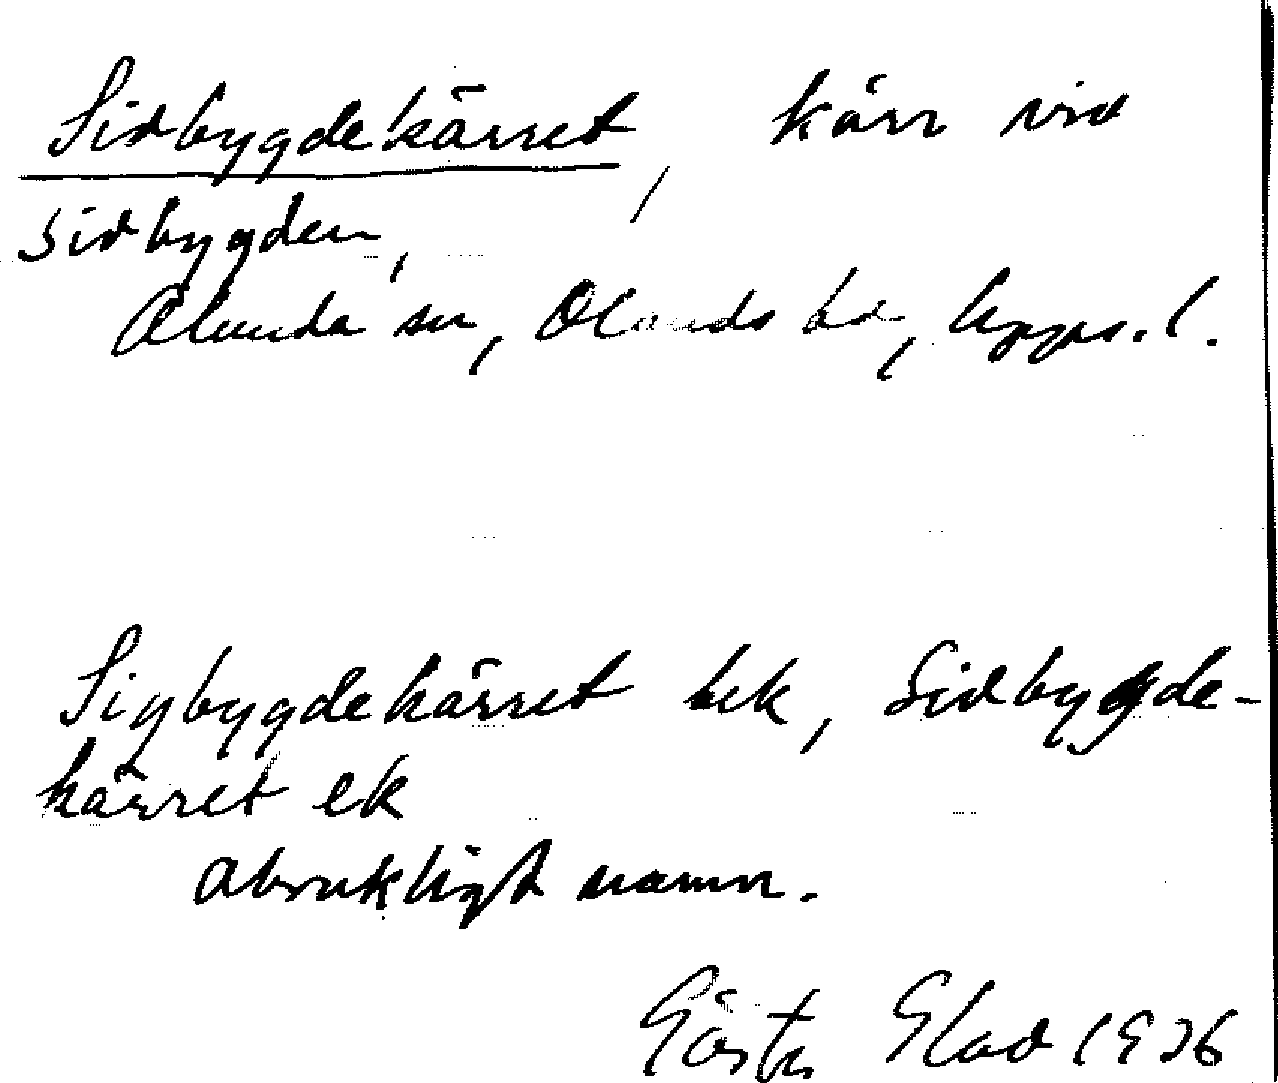 Sidbygdekärret, kärr vid
Sidbygden,
Alunda sn, Olands hd, Upps. l.
Sigbygdekärret bek, Sidbygde-
kärret ek
obrukligt namn.
Gösta Glad 1936